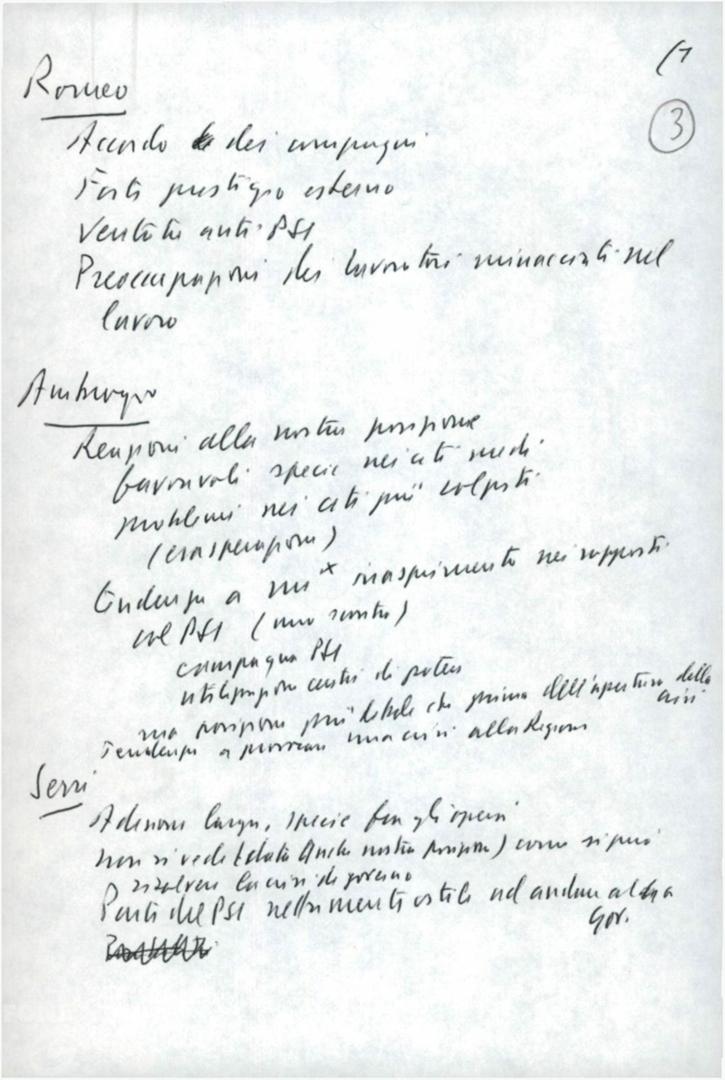 (7
3
Romeo
Accordo dei compagni
Forte prestigio esterno
Ventata anti PSI
Preoccupazioni dei lavoratori minacciati nel
lavoro
Ambrogio
Reazioni alla nostra posizione
favorevoli specie nei ceti medi
problemi nei ceti più colpiti
(esasperazione)
tendenza a un inasprimento nei rapporti
col PSI (uno scontro)
campagna PSI
utilizzazione centri di potere
ma posizione più debole che prima dell'apertura della
crisi
Tendenza a provocare una crisi alla Regione
Serri
Adesione larga, specie fra gli operai
non si vede (data anche nostra posizione) come si può
risolvere la crisi di governo
Parte del PSI nettamente ostile ad andare al
Gov.